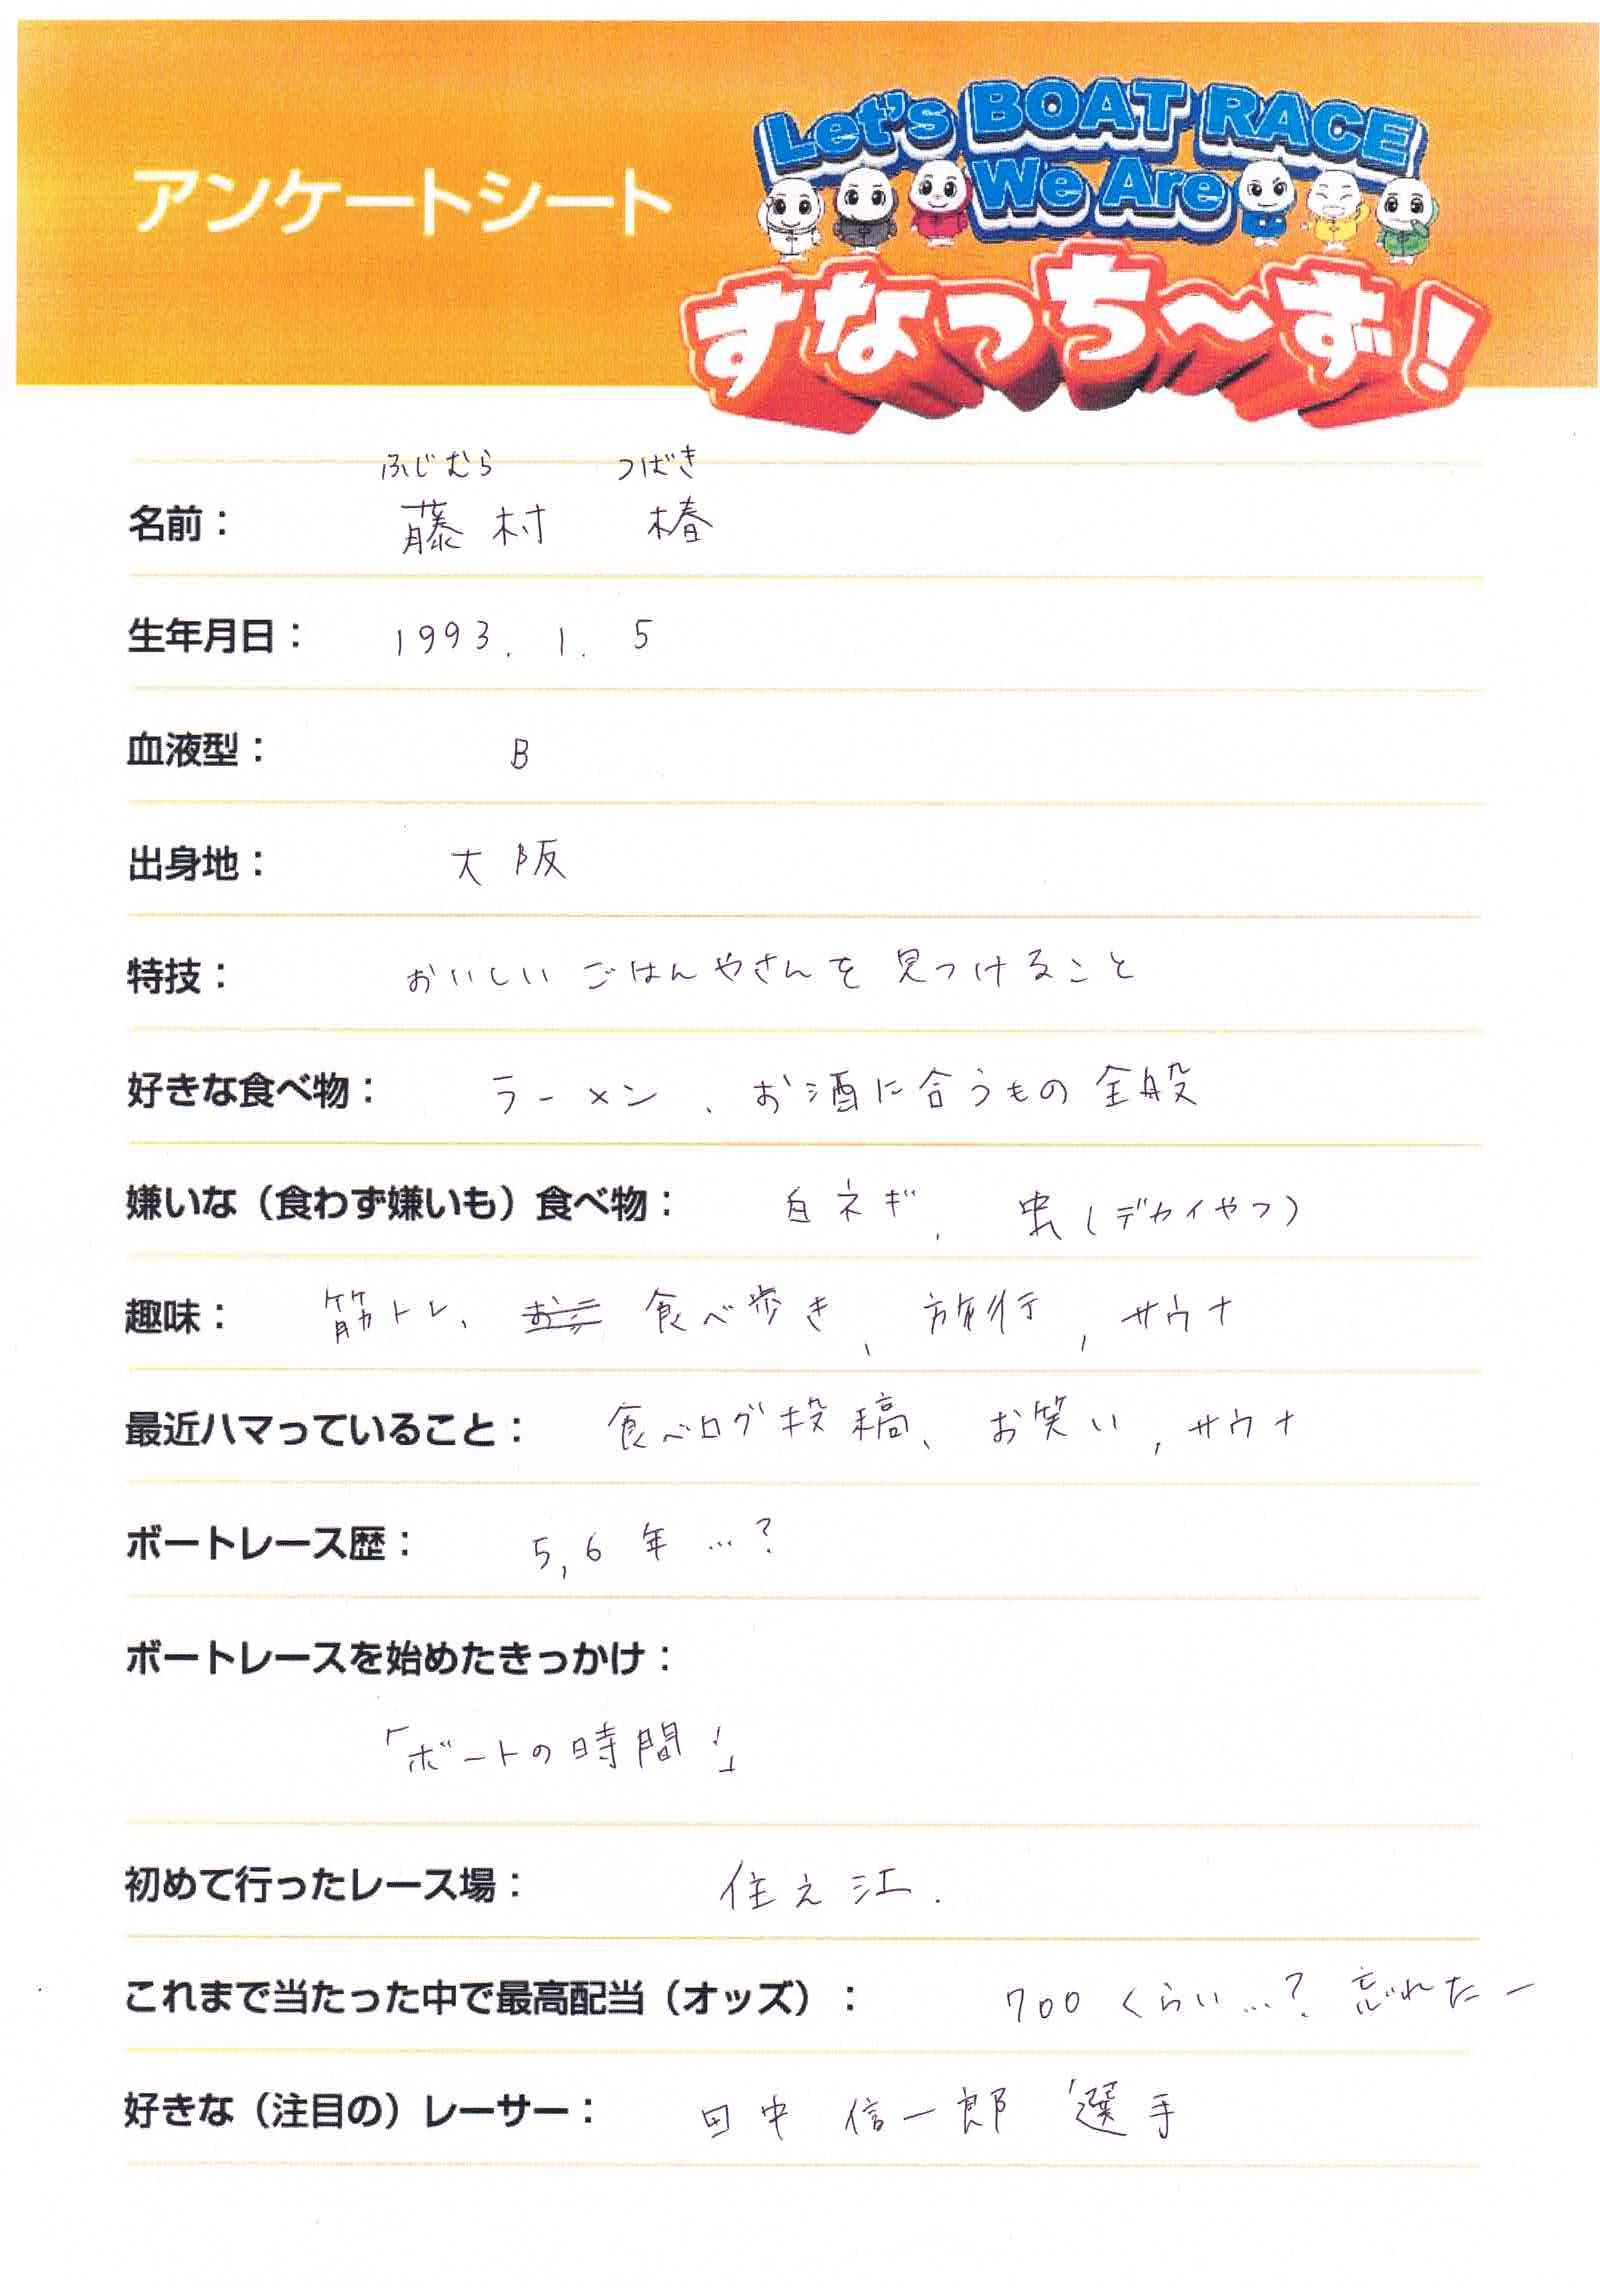 アンケートシート
Let's BOAT RACE
We Are
すなっち〜ず!
ふじむら つばき
名前: 藤村 椿
生年月日: 1993. 1. 5
血液型: B
出身地: 大阪
特技: おいしいごはんやさんを見つけること
好きな食べ物: ラーメン、お酒に合うもの全般
嫌いな(食わず嫌いも)食べ物: 白ネギ, 虫(デカイやつ)
趣味: 筋トレ、食べ歩き, 旅行, サウナ
最近ハマっていること: 食べログ投稿、お笑い, サウナ
ボートレース歴: 5,6年…?
ボートレースを始めたきっかけ:
「ボートの時間!」
初めて行ったレース場: 住之江.
これまで当たった中で最高配当(オッズ): 700くらい…? 忘れたー
好きな(注目の)レーサー: 田中 信一郎 選手